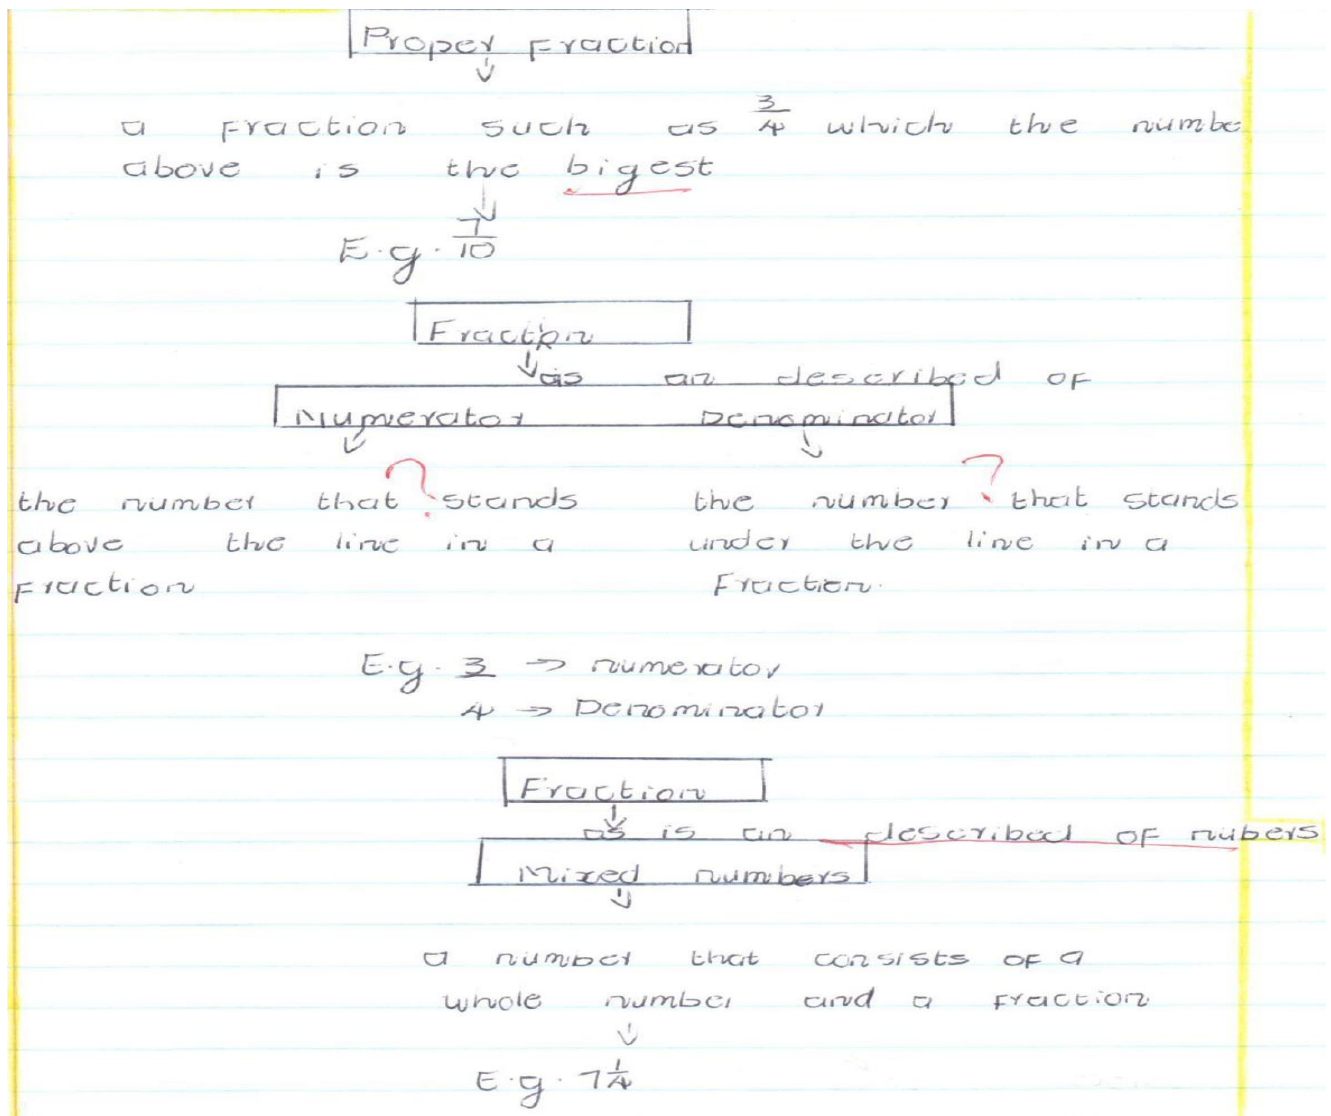 Proper Fraction
a fraction such as 3/4 which the numbe
above is the bigest
E.g. 7/10
Fraction
as an described of
Numerator Denominator
the number that ? stands the number ? that stands
above the line in a under the line in a
fraction Fraction.
E.g. 3 → numerator
4 → Denominator
Fraction
as is an described of nubers
Mixed numbers
a number that consists of a
whole number and a fraction
E.g. 7 1/4